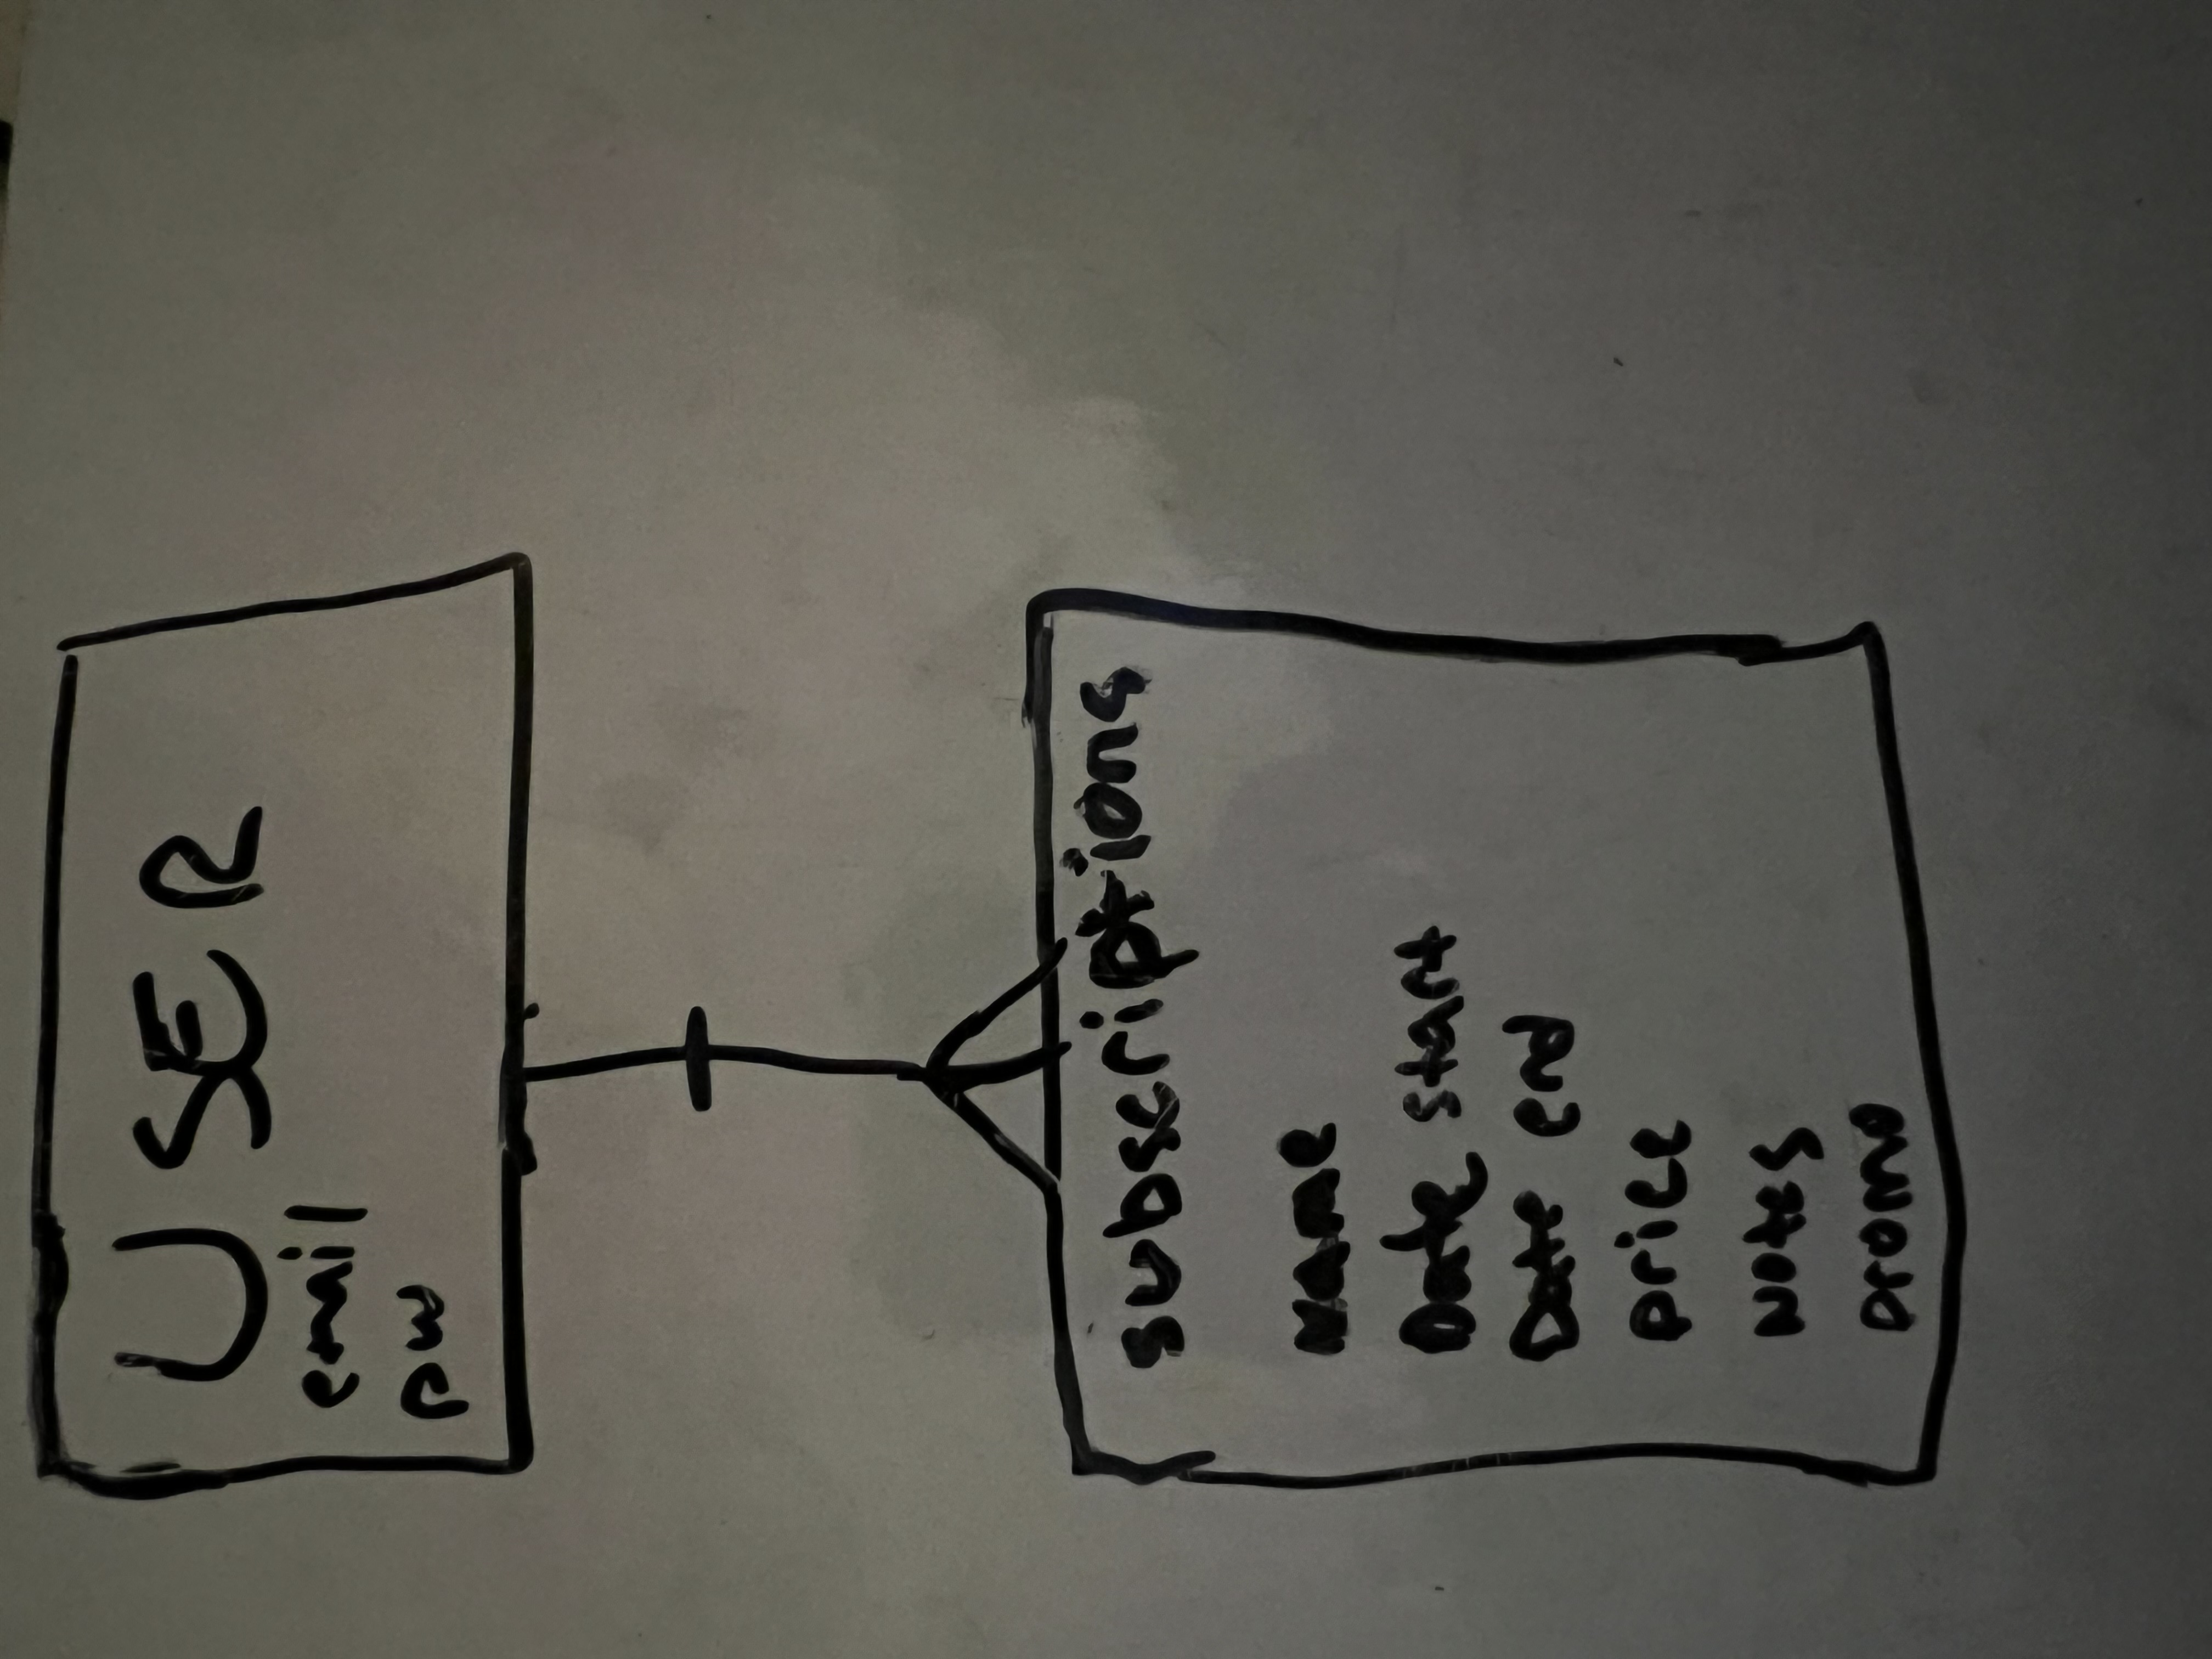 USER
email
pw
subscriptions
Name
Date start
Date end
price
Notes
promo